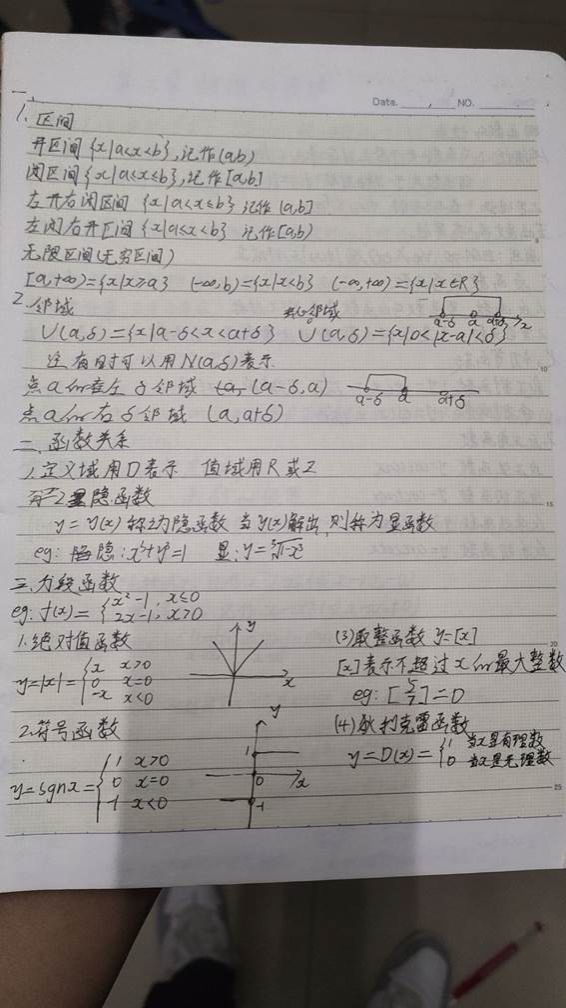 Date. , NO.
一、
1. 区间
开区间{x|a<x<b},记作(a,b)
闭区间{x|a≤x≤b},记作[a,b]
左开右闭区间 {x|a<x≤b} 记作(a,b]
左闭右开区间 {x|a≤x<b} 记作[a,b)
无限区间(无穷区间)
[a,+∞)={x|x≥a} (-∞,b)={x|x<b} (-∞,+∞)={x|x∈R}
2. 邻域 去心邻域
a-δ a a+δ x
U(a,δ)={x|a-δ<x<a+δ} Ů(a,δ)={x|0<|x-a|<δ}
注 有时可以用N(a,δ)表示
点a的左 δ邻域 (a-δ,a)
a-δ a a+δ
点a的右δ邻域 (a,a+δ)
二、函数关系
1.定义域用D表示 值域用R或Z
2 显隐函数
y=y(x)称之为隐函数 当y(x)解出,则称为显函数
eg: 隐:x³+y³=1 显:y=∛1-x³
三、分段函数
eg: f(x)={x²-1, x≤0
2x-1, x>0
1.绝对值函数
y=|x|={x x>0
0 x=0
-x x<0
y
x
(3)取整函数 y=[x]
[x]表示不超过x的最大整数
eg:[5/7]=0
2.符号函数
y=sgnx={1 x>0
0 x=0
-1 x<0
y
1
0 x
-1
(4)狄利克雷函数
y=D(x)={1 当x是有理数
0 当x是无理数
5
10
15
20
25